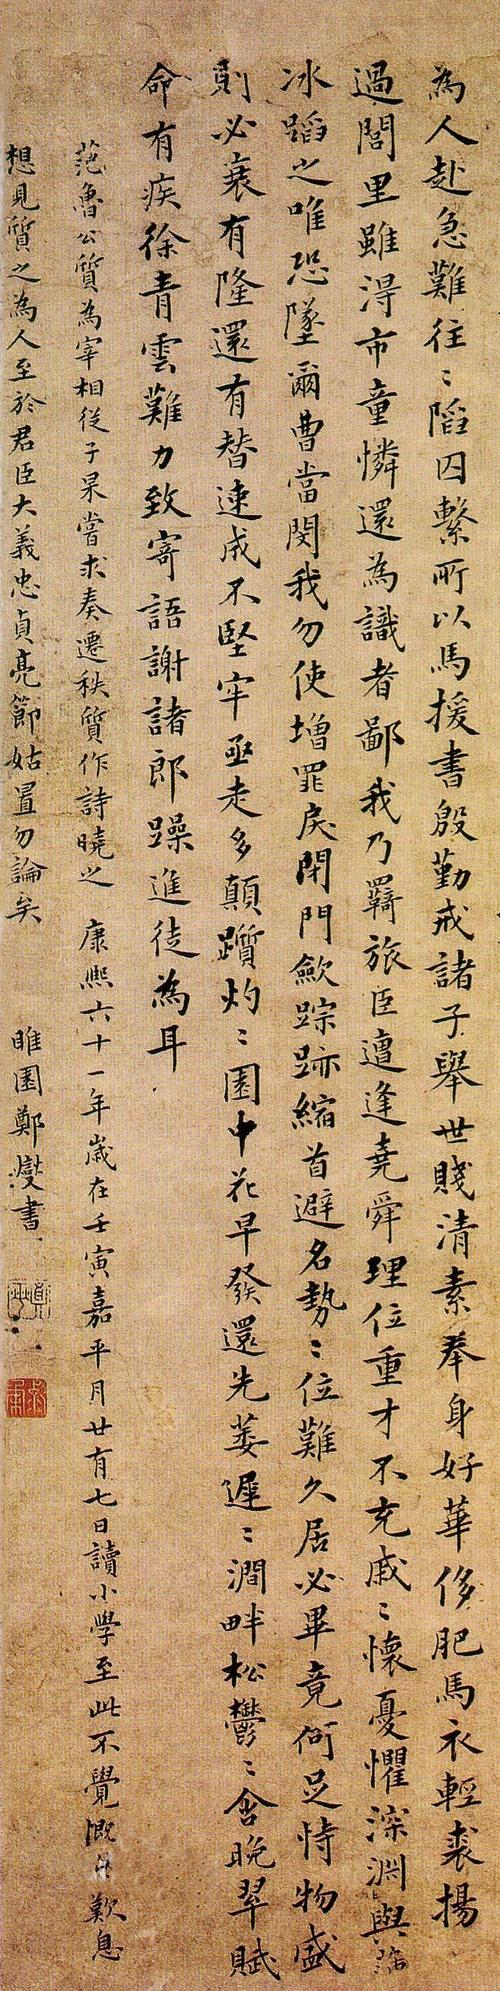 為人赴急難往〻陷囚繫所以馬援書殷勤戒諸子舉世賤清素奉身好華侈肥馬衣輕裘揚
過閭里雖得市童憐還為識者鄙我乃羇旅臣遭逢堯舜理位重才不充戚〻懷憂懼深淵與
冰蹈之唯恐墜爾曹當閔我勿使增罪戾閉門歛踪跡縮首避名勢〻位難久居必畢竟何足恃物盛
則必衰有隆還有替速成不堅牢亟走多顛躓灼〻園中花早發還先萎遲〻澗畔松鬱〻含晚翠賦
命有疾徐青雲難力致寄語謝諸郎躁進徒為耳
范魯公質為宰相從子杲嘗求奏遷秩質作詩曉之 康熙六十一年歲在壬寅嘉平月廿有七日讀小學至此不覺慨然歎息
想見質之為人至於君臣大義忠貞亮節姑置勿論矣 睢園鄭燮書